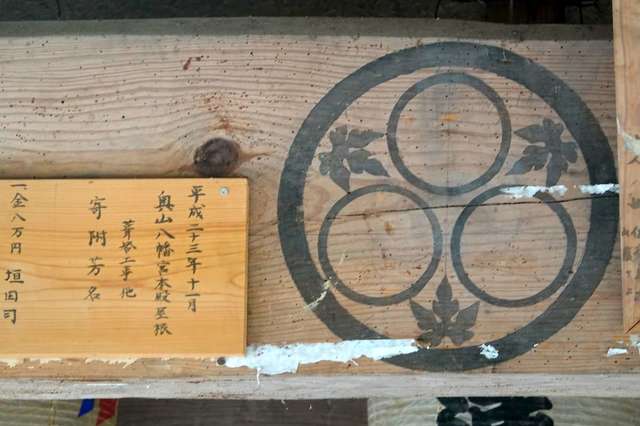 平成二十三年十一月
奥山八幡宮本殿屋根
葺替工事他
寄附芳名
一金八万円 垣田司